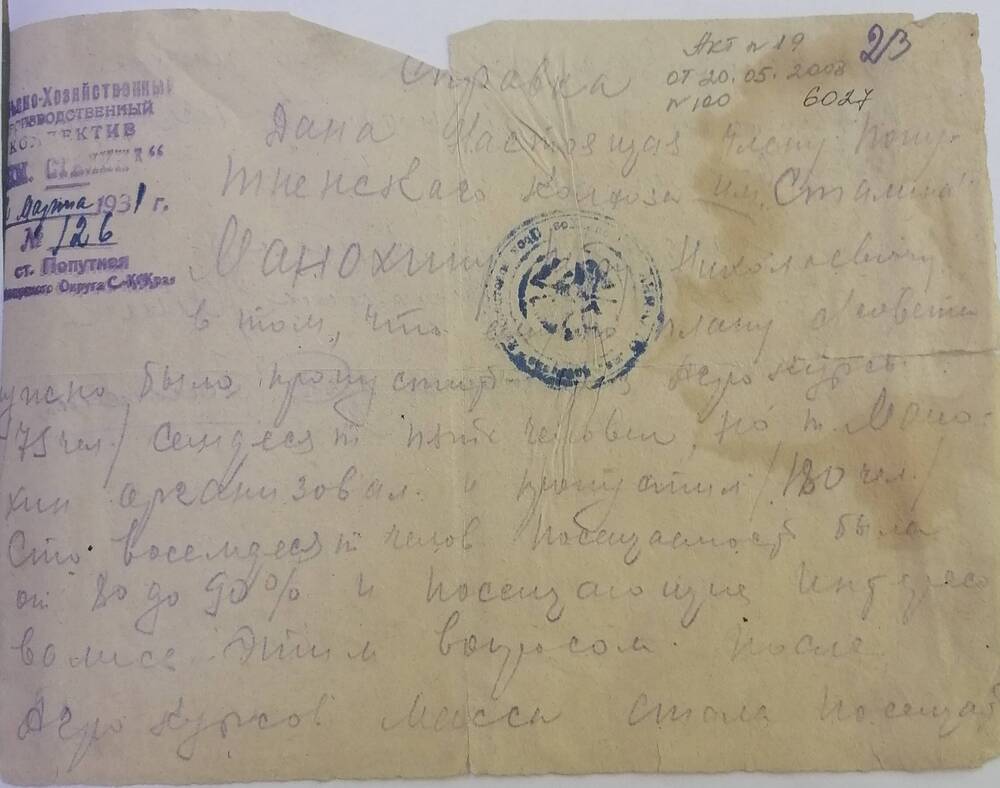 Акт № 19
от 20.05.2008
№ 100 6027
23
Справка
Хозяйственный
изводственный
"
Марта 1931 г.
№ 126
ст. Попутная
Округа С.-К. Края
Дана Настоящая члену Попу-
тненскаго Колхоза им. Сталина
Манохину Николаевичу
в том, что плану
нужно было пропустить Агро Курсы
/75 чел./ семдесят пять человек, но т. Мано-
хин организовал и пропустил /180 чел./
Сто восемдесят челов посещаемость была
от 80 до 90% и посещающие интересо
вались этим вопросом. После
Агро Курсов масса стала посещать